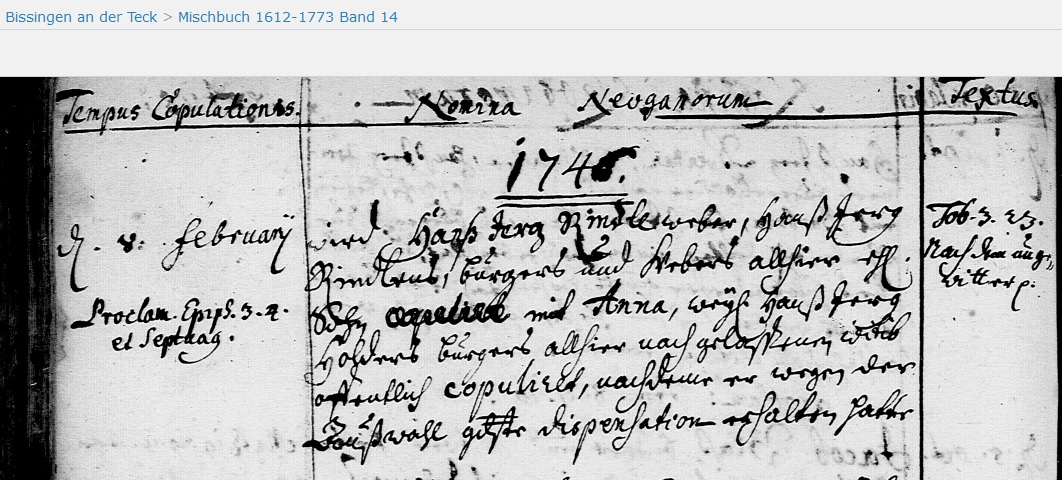 Bissingen an der Teck > Mischbuch 1612-1773 Band 14
Tempus Copulationis. Nomina Neogamorum Textus
1746.
d. 8. Februarij
Proclam. Epiph. 3. 4.
et Septuag.
wird Hanß Jerg Rindle weber, Hanß Jerg
Rindlens, burgers und Webers allhier ehl.
Sohn copuliert mit Anna, weyl. Hanß Jerg
Hohders burgers allhier nachgelassenen
offentlich copuliert, nachdeme er wegen der
dispensation erhalten hatte
Tob. 3. 23.
Nach dem unge-
witter p.